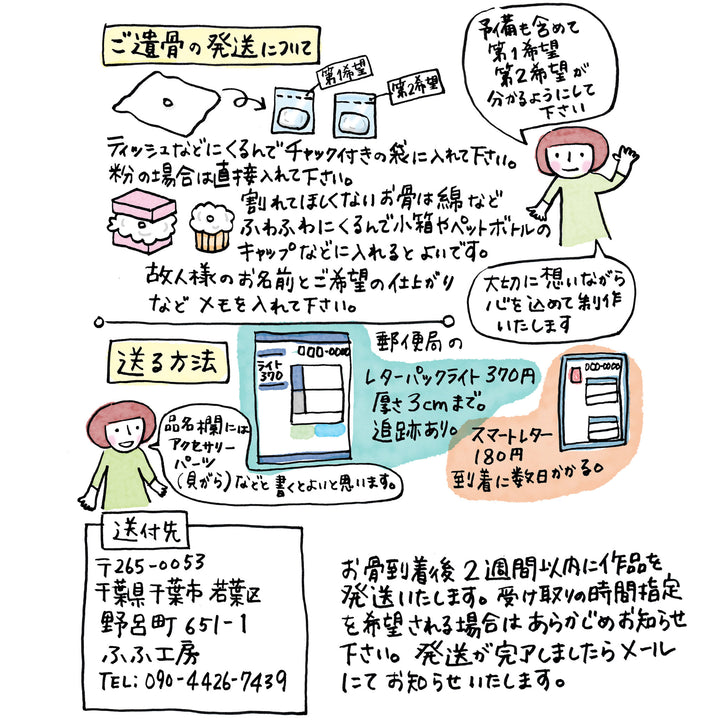 ご遺骨の発送について
第1希望
第2希望
予備も含めて
第1希望
第2希望が
分かるようにして
下さい
ティッシュなどにくるんでチャック付きの袋に入れて下さい。
粉の場合は直接入れて下さい。
割れてほしくないお骨は綿など
ふわふわにくるんで小箱やペットボトルの
キャップなどに入れるとよいです。
故人様のお名前とご希望の仕上がり
など メモを入れて下さい。
大切に想いながら
心を込めて制作
いたします
送る方法
郵便局の
レターパックライト370円
厚さ3cmまで。
追跡あり。
ライト
370
スマートレター
180円
到着に数日かかる。
品名欄には
アクセサリー
パーツ
(貝がら)などと書くとよいと思います。
送付先
〒265-0053
千葉県千葉市若葉区
野呂町651-1
ふふ工房
TEL: 090-4426-7439
お骨到着後2週間以内に作品を
発送いたします。受け取りの時間指定
を希望される場合はあらかじめお知らせ
下さい。発送が完了しましたらメール
にてお知らせいたします。